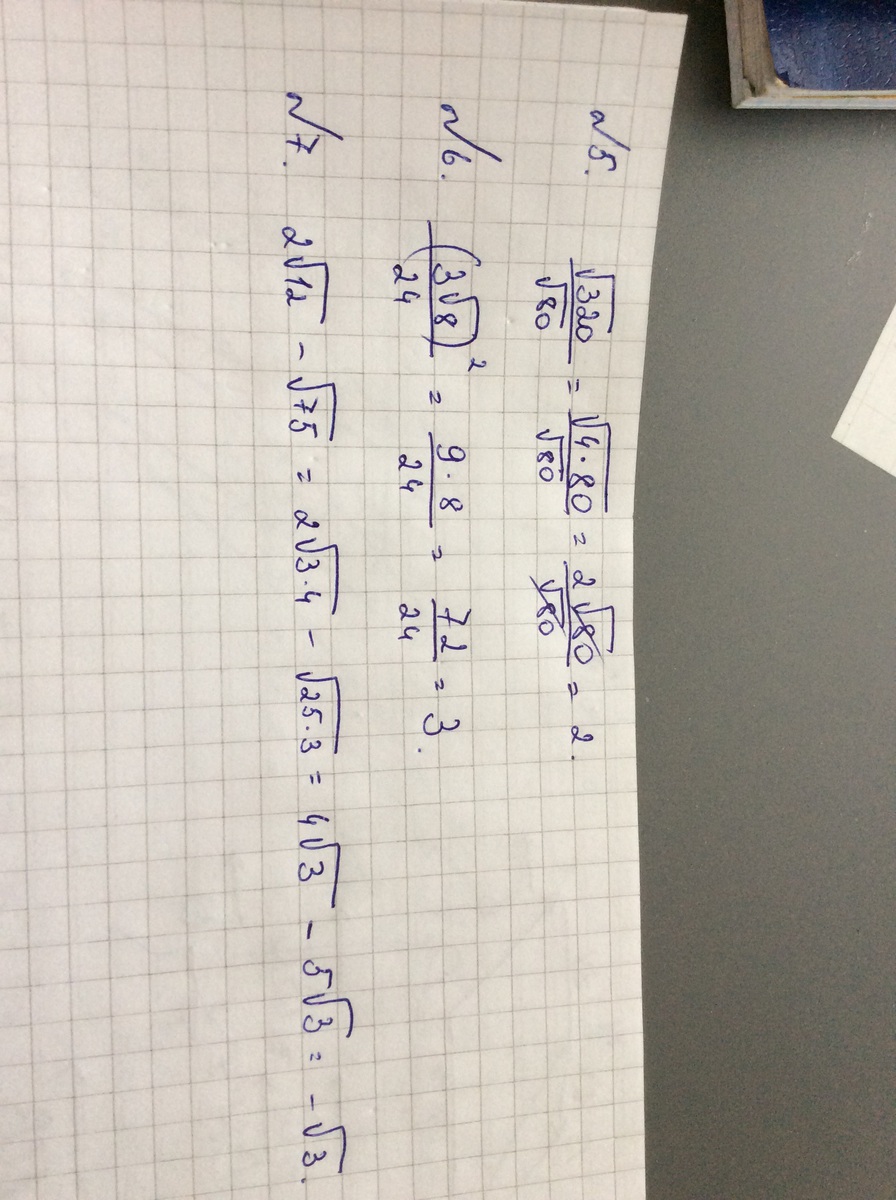 №5. √320/√80 = √4·80/√80 = 2√80/√80 = 2.
№6. (3√8)²/24 = 9·8/24 = 72/24 = 3.
№7. 2√12 - √75 = 2√3·4 - √25·3 = 4√3 - 5√3 = -√3.